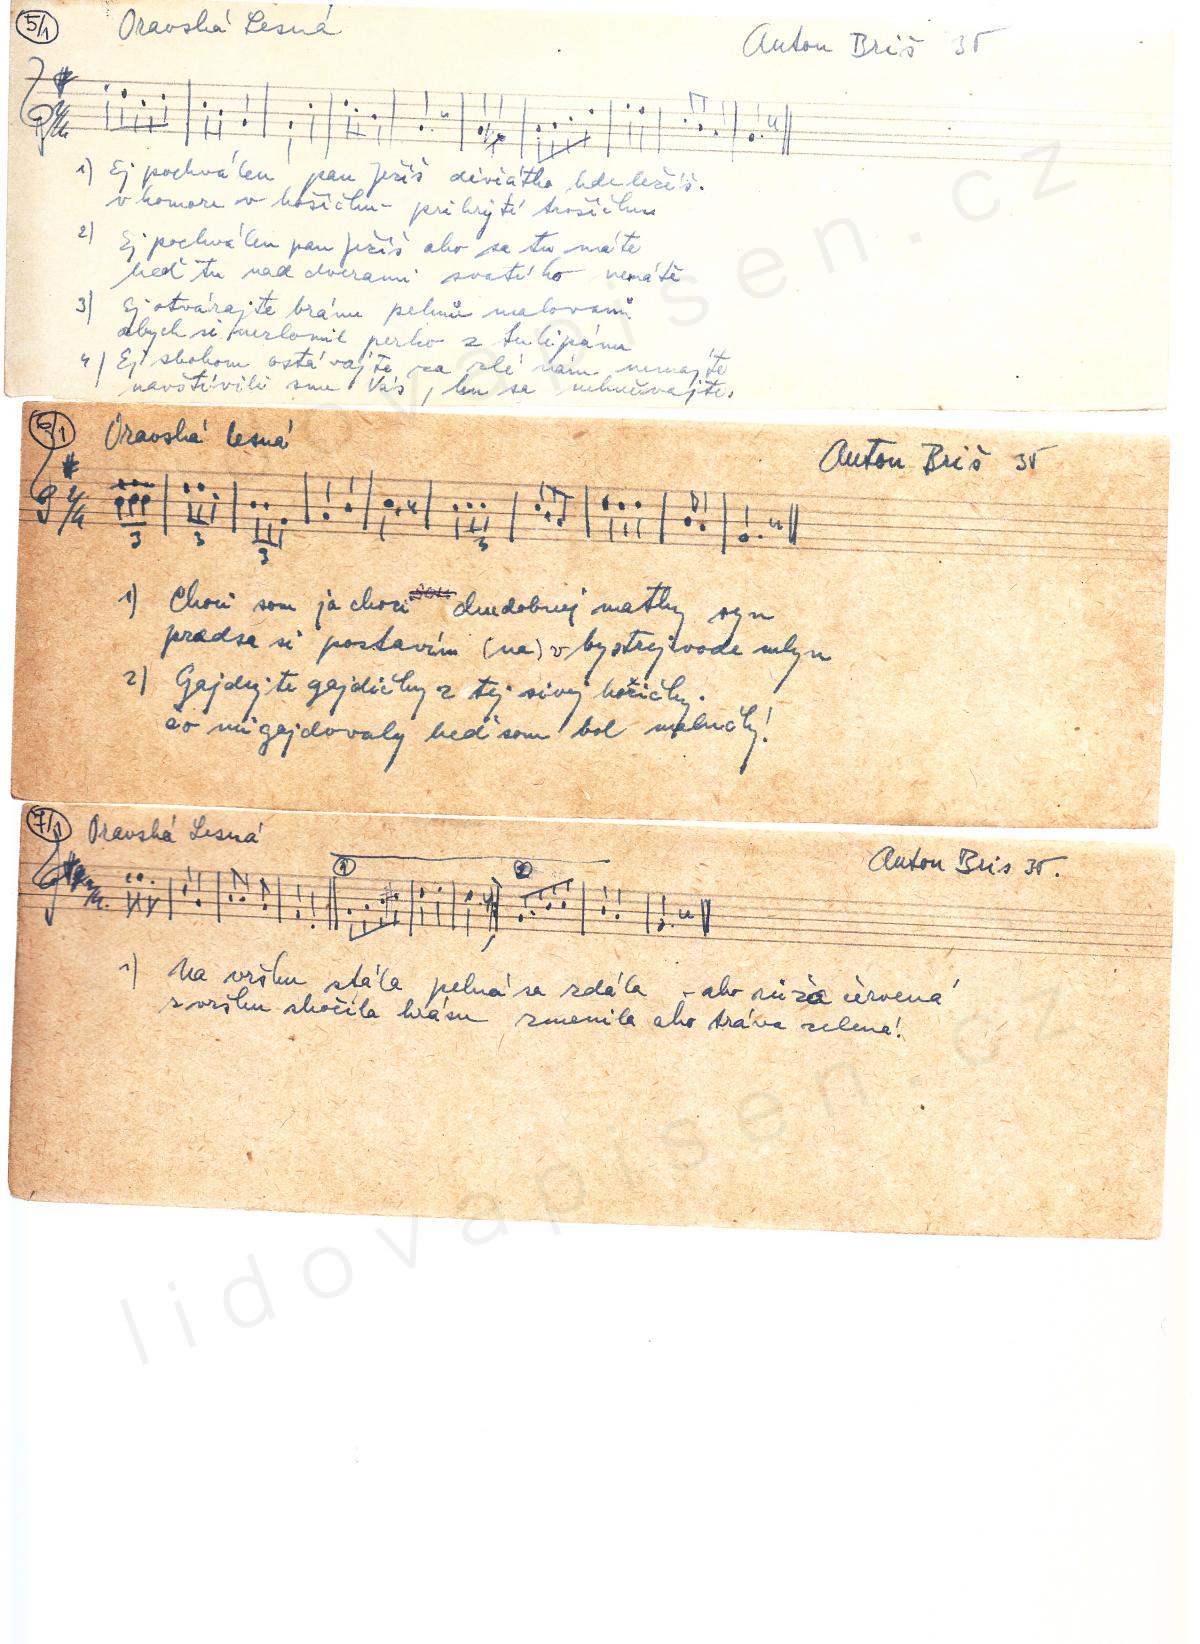 5/1 Oravská Lesná Anton Briš 35
1) Ej pochválen pan Ježíš diviátko kde ležíš.
v komore v košíčku - prikryté trošíčku
2) Ej pochválen pan Ježíš ako sa tu máte
keď tu nad dverami svatého nemáte
3) Ej otvárajte bránu peknú malovanú
abych si nezlomil perko z tulipánu
4) Ej sbohom ostávajte za zlé nám nemajte
navštívili sme Vás, len sa nehnevajte.
6/1 Oravská Lesná Anton Briš 35
3 3 3 3
1) Choci som ja choci chudobnej matky syn
predsa si postavím (na) v bystrej vode mlyn
2) Gajdejte gajdičky z tej sivej kožičky.
čo mi gajdovaly keď som bol malučký!
7/1 Oravská Lesná Anton Bris 35.
1 2
1) Na vršku stála pekná sa zdála - ako růža červená
z vršku skočila krásu zmenila ako tráva zelená!
lidovapisen.cz
lidovapisen.cz